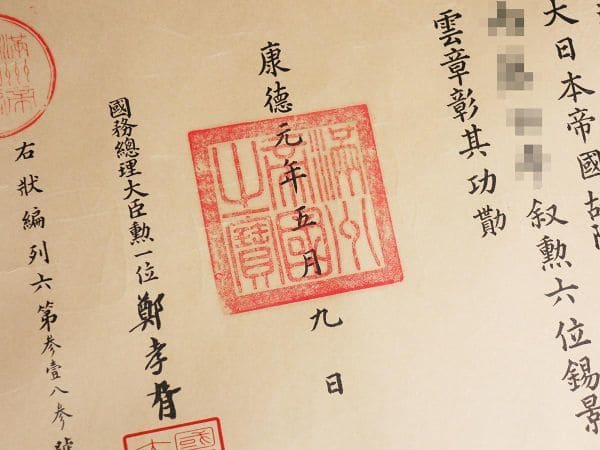 大日本帝國
叙勲六位錫景
雲章彰其功勛
康德元年五月九日
滿州
帝國
之寶
國務總理大臣勲一位 鄭孝胥
右狀編列六第参壹八参號